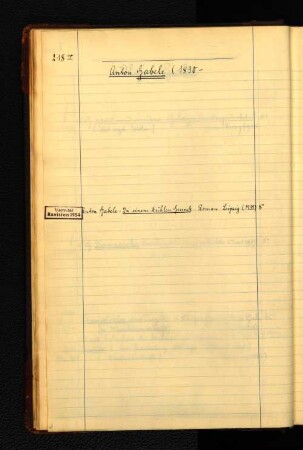 218 II
Anton Gabele (1890 –
Vermißt
Revision 1954
Anton Gabele: In einem kühlen Grunde. Roman. Leipzig (1939) 8°